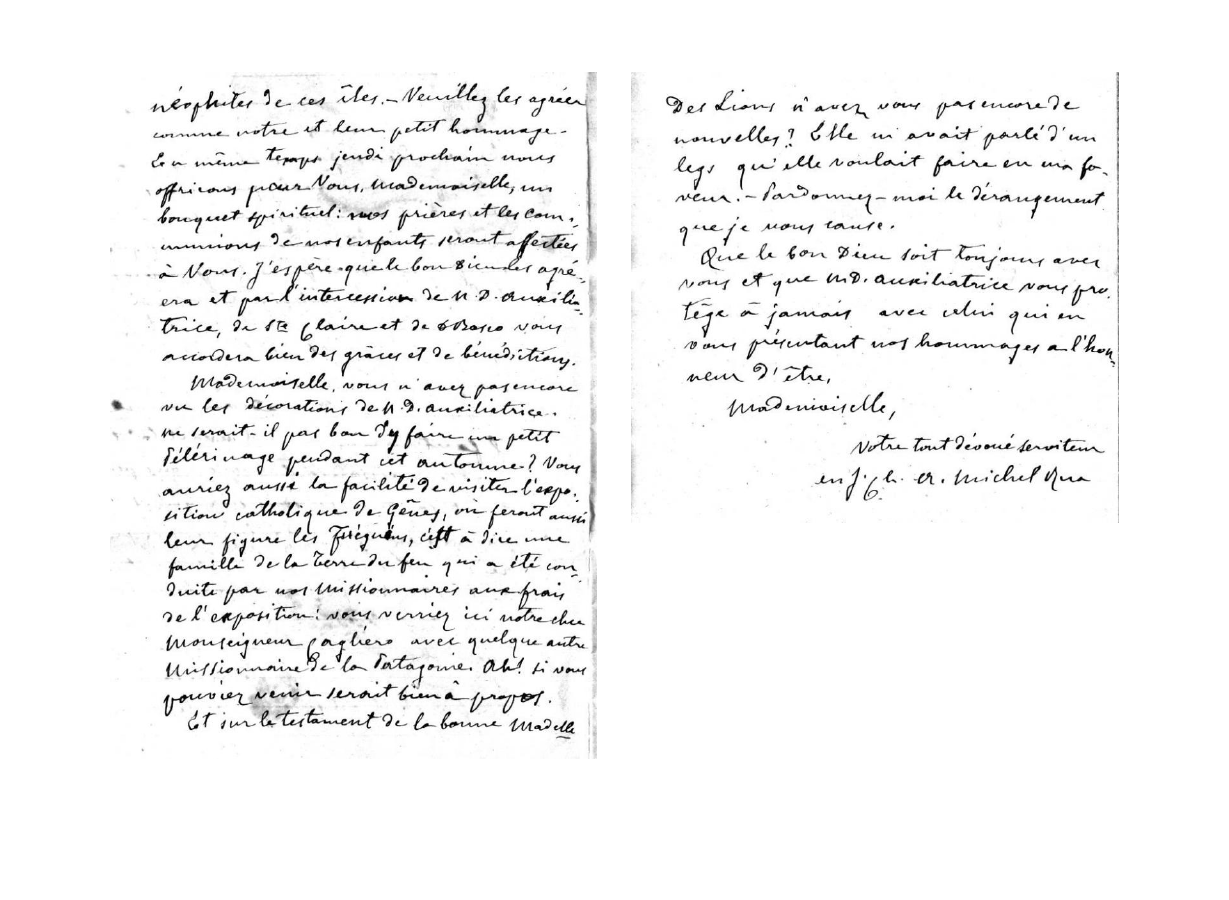 néophites de ces îles. – Veuillez les agréer
comme notre et leur petit hommage –
En même temps jeudi prochain nous
offrirons pour Vous, Mademoiselle, un
bouquet spirituel: nos prières et les com-
munions de nos enfants seront affectées
à Vous. J'espère que le bon Dieu les agré-
era et par l'intercession de N. D. auxilia-
trice, de Ste Claire et de D Bosco vous
accordera bien des grâces et de bénédictions.
Mademoiselle, vous n'avez pas encore
vu les décorations de N. D. auxiliatrice.
ne serait-il pas bon d'y faire un petit
Pélérinage pendant cet automne? Vous
auriez aussi la facilité de visiter l'expo-
sition catholique de Gênes, où feront aussi
leur figure les c'est à dire une
famille de la Terre du feu qui a été con-
duite par nos Missionnaires aux frais
de l'exposition: vous verriez ici notre cher
Monseigneur Cagliero avec quelque autre
Missionnaire de la Patagonie. Ah! si vous
pouviez venir serait bien à propos.
Et sur le testament de la bonne Madelle
Des Lions n'avez vous pas encore de
nouvelles? Elle m'avait parlé d'un
legs qu'elle voulait faire en ma fa-
veur. – Pardonnez-moi le dérangement
que je vous cause.
Que le bon Dieu soit toujours avec
vous et que N. D. auxiliatrice vous pro-
tège à jamais avec celui qui en
vous présentant nos hommages a l'hon-
neur d'être,
Mademoiselle,
Votre tout dévoué serviteur
en J. Ch. Michel Rua